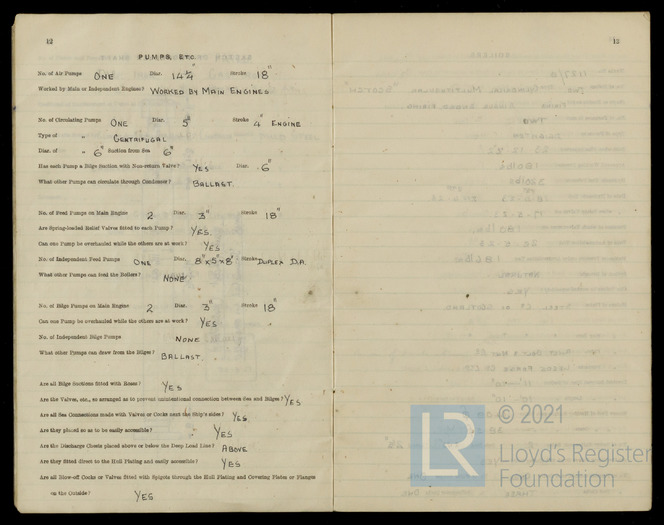 12
PUMPS, ETC.
No. of Air Pumps ONE Diar. 14¼" Stroke 18"
Worked by Main or Independent Engines? WORKED BY MAIN ENGINES
No. of Circulating Pumps ONE Diar. 5" Stroke 4" ENGINE
Type of " CENTRIFUGAL
Diar. of " 6" Suction from Sea 6"
Has each Pump a Bilge Suction with Non-return Valve? YES Diar. 6"
What other Pumps can circulate through Condenser? BALLAST.
No. of Feed Pumps on Main Engine 2 Diar. 3" Stroke 18"
Are Spring-loaded Relief Valves fitted to each Pump? YES.
Can one Pump be overhauled while the others are at work? YES
No. of Independent Feed Pumps ONE Diar. 8"x5"x8" Stroke DUPLEX D.A.
What other Pumps can feed the Boilers? NONE
No. of Bilge Pumps on Main Engine 2 Diar. 3" Stroke 18"
Can one Pump be overhauled while the others are at work? YES
No. of Independent Bilge Pumps NONE
What other Pumps can draw from the Bilges? BALLAST.
Are all Bilge Suctions fitted with Roses? YES
Are the Valves, etc., so arranged as to prevent unintentional connection between Sea and Bilges? YES
Are all Sea Connections made with Valves or Cocks next the Ship's sides? YES.
Are they placed so as to be easily accessible? YES
Are the Discharge Chests placed above or below the Deep Load Line? ABOVE
Are they fitted direct to the Hull Plating and easily accessible? YES
Are all Blow-off Cocks or Valves fitted with Spigots through the Hull Plating and Covering Plates or Flanges
on the Outside? YES
13
LR
© 2021
Lloyd's Register
Foundation